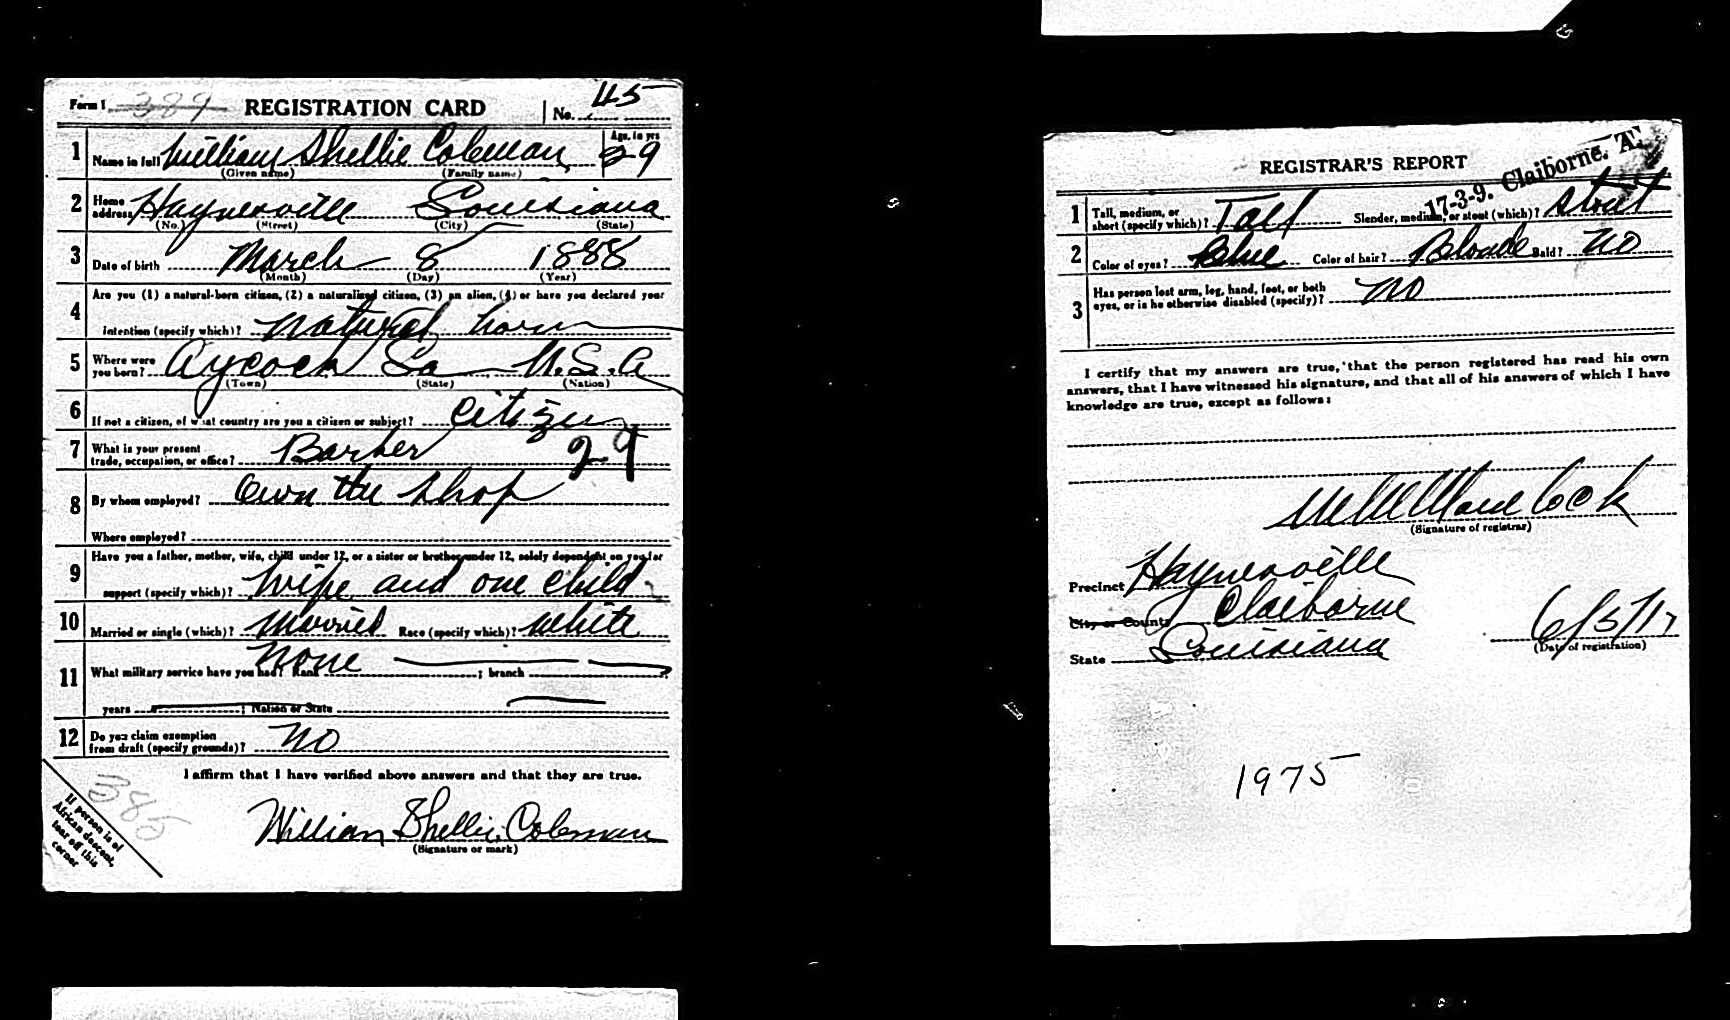 Form 1 389 REGISTRATION CARD No. 45
1 Name in full William Shellie Coleman Age, in yrs 29
(Given name) (Family name)
2 Home address Haynesville Louisiana
(No.) (Street) (City) (State)
3 Date of birth March 8 1888
(Month) (Day) (Year)
4 Are you (1) a natural-born citizen, (2) a naturalized citizen, (3) an alien, (4) or have you declared your
intention (specify which)? natural born
5 Where were you born? Aycock La U.S.A
(Town) (State) (Nation)
6 If not a citizen, of what country are you a citizen or subject? Citizen
7 What is your present trade, occupation, or office? Barber 29
8 By whom employed? Own the shop
Where employed?
9 Have you a father, mother, wife, child under 12, or a sister or brother under 12, solely dependent on you for
support (specify which)? Wife and one child
10 Married or single (which)? Married Race (specify which)? White
11 What military service have you had? Rank None ; branch
years ; Nation or State
12 Do you claim exemption from draft (specify grounds)? No
I affirm that I have verified above answers and that they are true.
385
William Shellie Coleman
(Signature or mark)
If person is of
African descent,
tear off this
corner
REGISTRAR'S REPORT
17-3-9. Claiborne. A.
1 Tall, medium, or short (specify which)? Tall Slender, medium, or stout (which)? Stout
2 Color of eyes? Blue Color of hair? Blonde Bald? No
3 Has person lost arm, leg, hand, foot, or both
eyes, or is he otherwise disabled (specify)? No
I certify that my answers are true, that the person registered has read his own
answers, that I have witnessed his signature, and that all of his answers of which I have
knowledge are true, except as follows:
(Signature of registrar)
Precinct Haynesville
City or County Claiborne
State Louisiana 6/5/17
(Date of registration)
1975